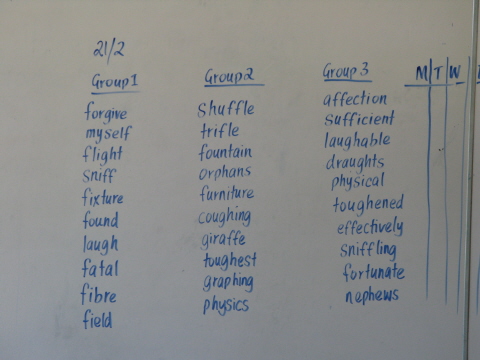 21/2
Group 1
forgive
myself
flight
sniff
fixture
found
laugh
fatal
fibre
field
Group 2
Shuffle
trifle
fountain
orphans
furniture
coughing
giraffe
toughest
graphing
physics
Group 3
affection
sufficient
laughable
draughts
physical
toughened
effectively
sniffling
fortunate
nephews
M T W